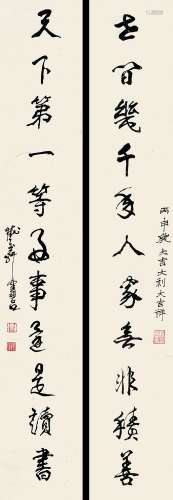 世間幾千年人家無非積善
丙申 大吉大利大吉祥
天下第一等好事還是讀書